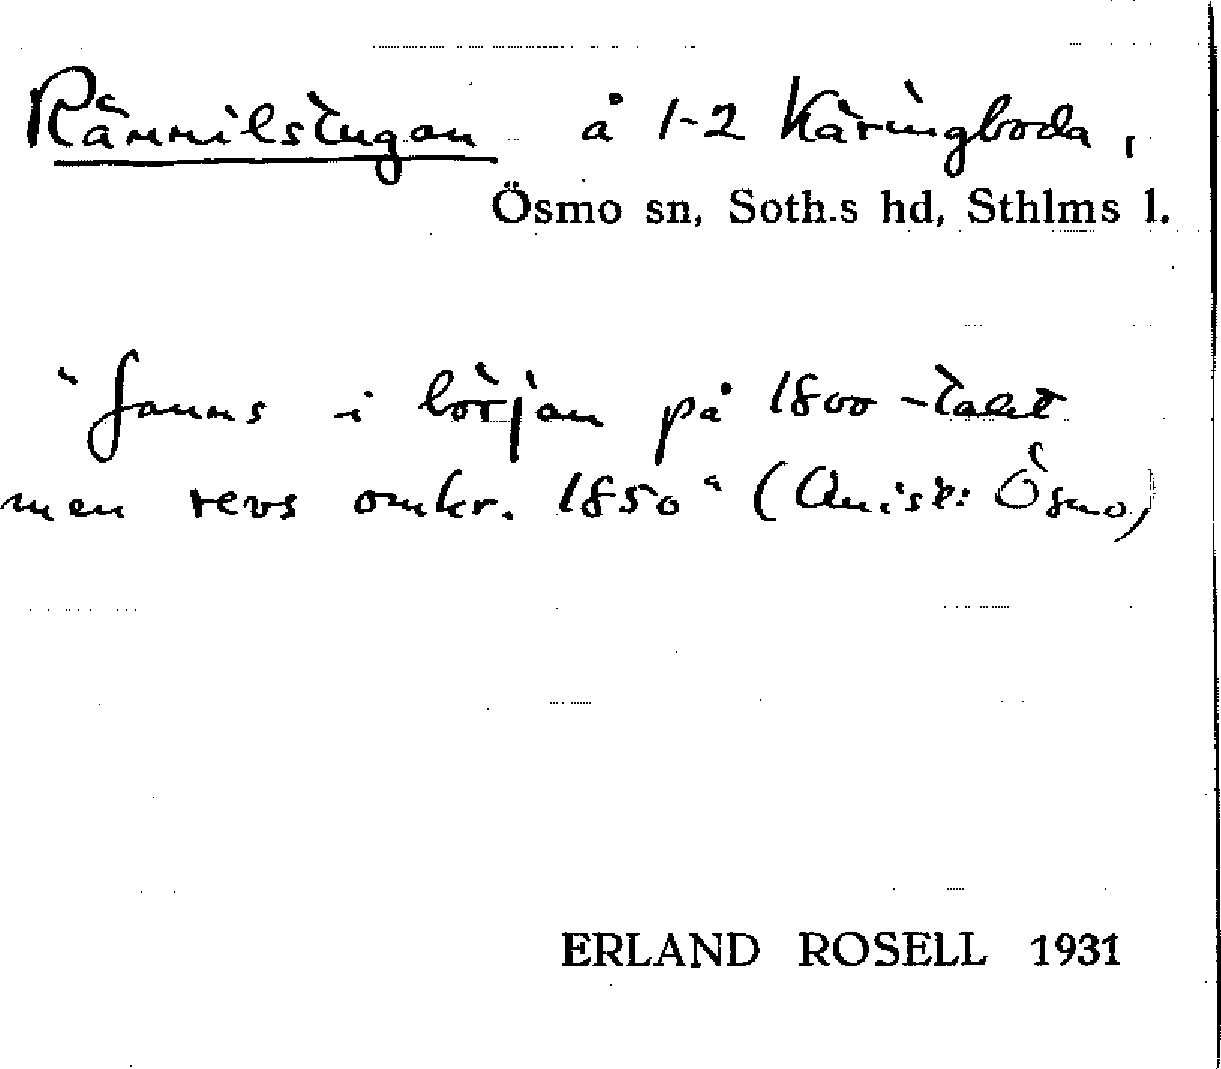 Rännilstugan å 1-2 Käringboda,
Ösmo sn, Soth.s hd, Sthlms l.
"fanns i början på 1800-talet
men revs omkr. 1850" ( Ösmo)
ERLAND ROSELL 1931